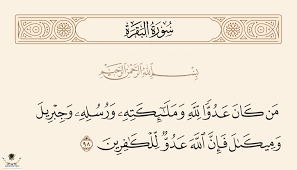 سُورَةُ البَقَرَةِ
بِسْمِ اللَّهِ الرَّحْمَٰنِ الرَّحِيمِ
مَن كَانَ عَدُوًّا لِّلَّهِ وَمَلَٰٓئِكَتِهِۦ وَرُسُلِهِۦ وَجِبْرِيلَ
وَمِيكَىٰلَ فَإِنَّ ٱللَّهَ عَدُوٌّ لِّلْكَٰفِرِينَ ٩٨